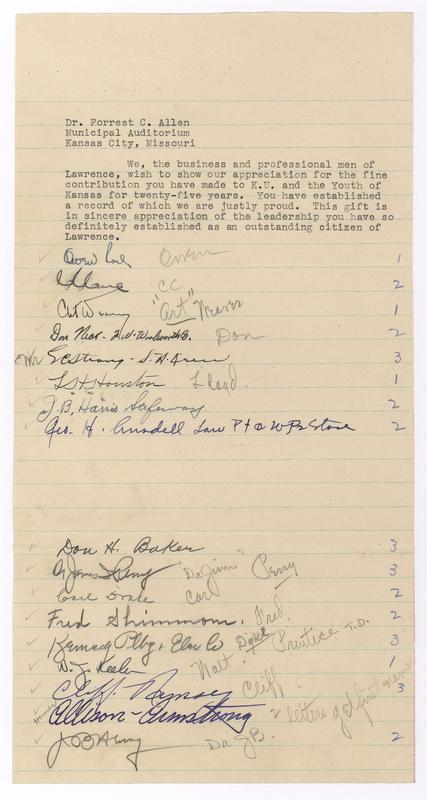 Dr. Forrest C. Allen
Municipal Auditorium
Kansas City, Missouri
We, the business and professional men of
Lawrence, wish to show our appreciation for the fine
contribution you have made to K.U. and the Youth of
Kansas for twenty-five years. You have established
a record of which we are justly proud. This gift is
in sincere appreciation of the leadership you have so
definitely established as an outstanding citizen of
Lawrence.
1
CC 2
Art Weaver "Art" Weaver 1
Don 2
E C Strong - 3
Houston Lloyd. 1
J.B. Harris Safeway 2
Geo. H. Store 2
Don H. Baker 3
Perry "Dr Jim" Perry 3
Carl Carl 2
Fred Shimmon. Fred. 2
Kennedy Plbg & Elec Co Prentice T.D. 3
W. J. Keeler Walt. 1
Cliff. Ramsey Cliff. 3
Allison-Armstrong 2 letters get first name
J B Henry Dr JB. 2